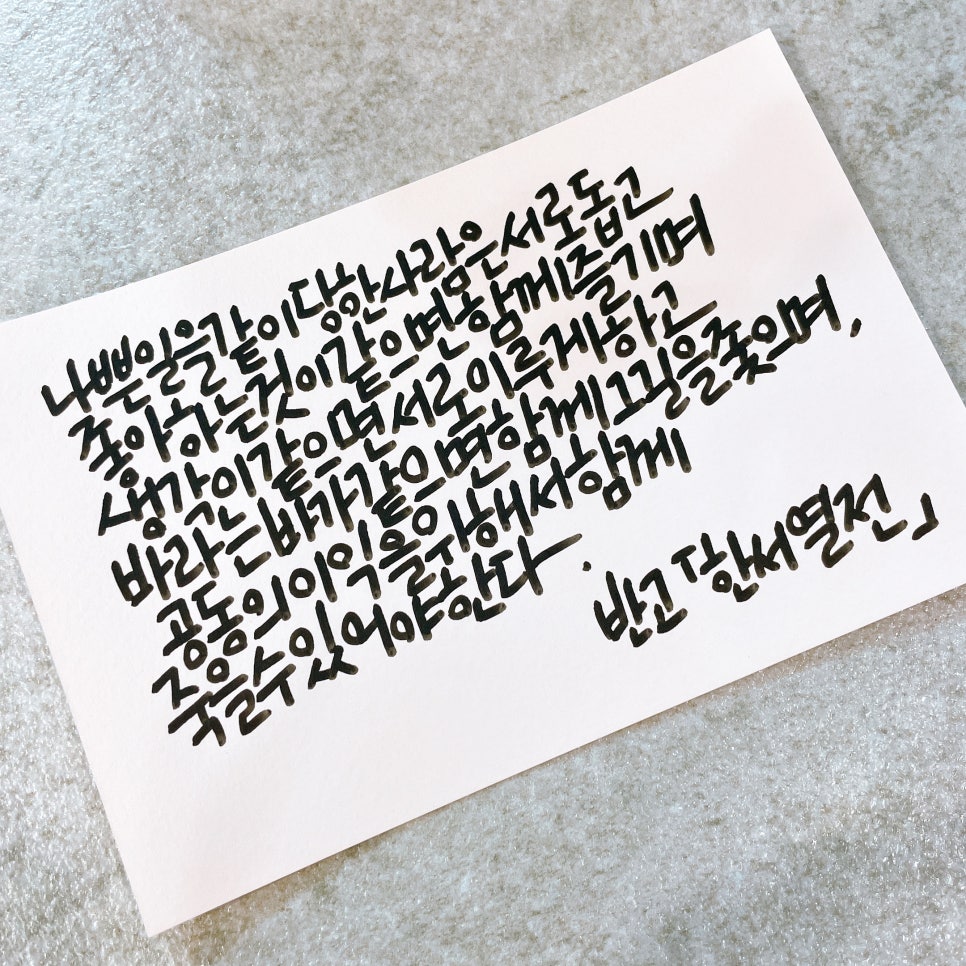 나쁜 일을 같이 당한 사람은 서로 돕고
좋아하는 것이 같으면 함께 즐기며
생각이 같으면 서로 이루게 하고
바라는 바가 같으면 함께 그 길을 좇으며,
공동의 이익을 위해서 함께
죽을 수 있어야 한다.
반고 「한서열전」